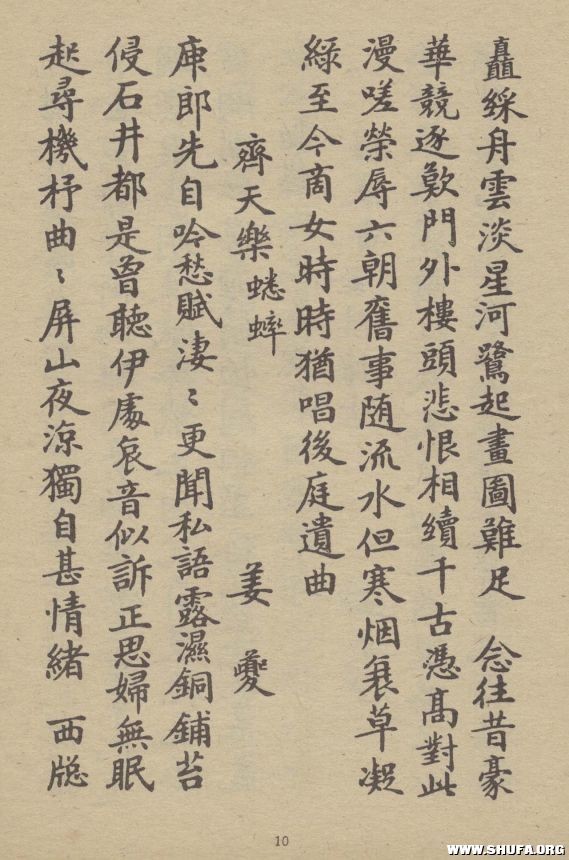 矗綵舟雲淡星河鷺起畫圖難足　念往昔豪
華競逐歎門外樓頭悲恨相續千古憑高對此
漫嗟榮辱六朝舊事随流水但寒烟衰草凝
綠至今商女時時猶唱後庭遺曲
齊天樂蟋蟀　姜夔
庾郎先自吟愁賦淒〻更聞私語露濕銅鋪苔
侵石井都是曾聽伊處哀音似訴正思婦無眠
起尋機杼曲〻屏山夜涼獨自甚情緒　西牕
10
WWW.SHUFA.ORG